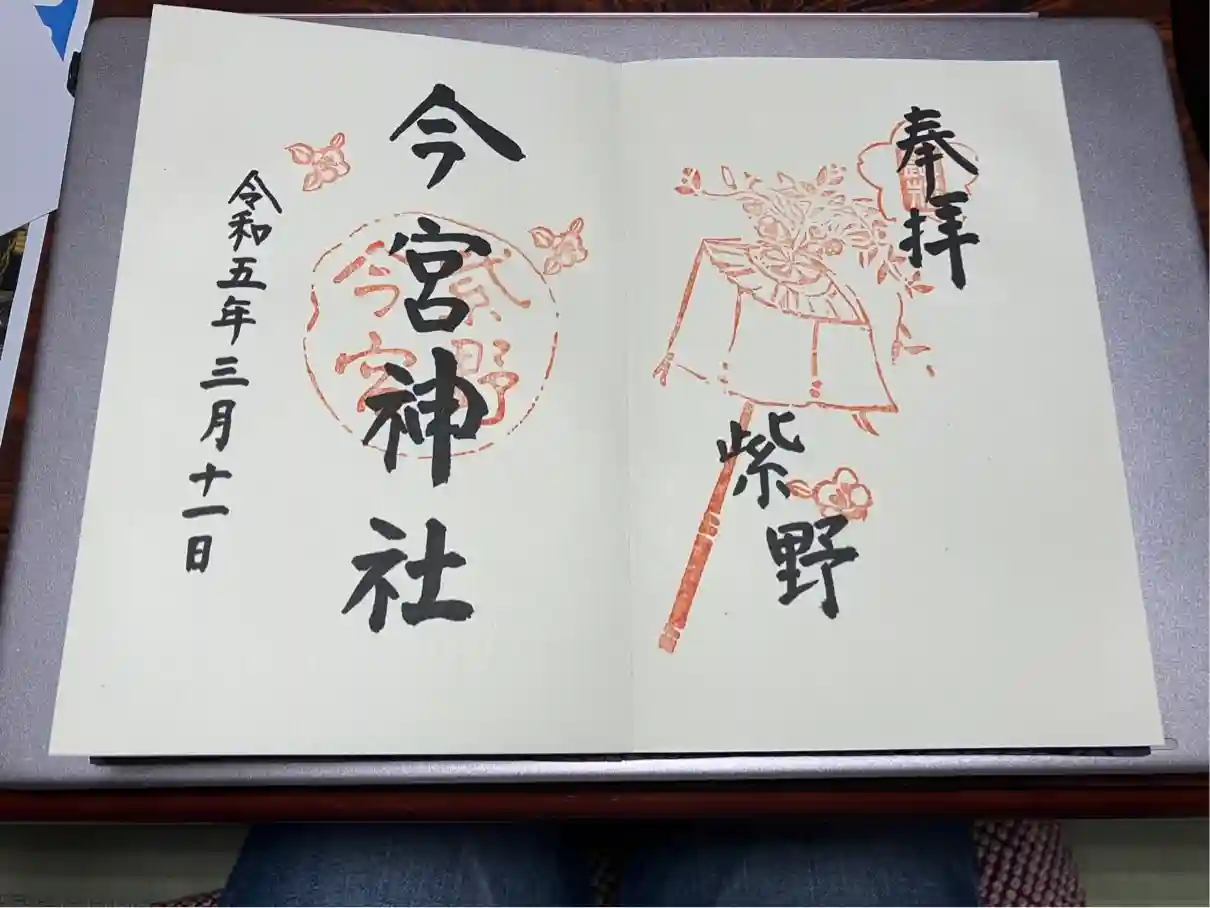 奉拝
紫野
今宮神社
紫野
今宮
令和五年三月十一日